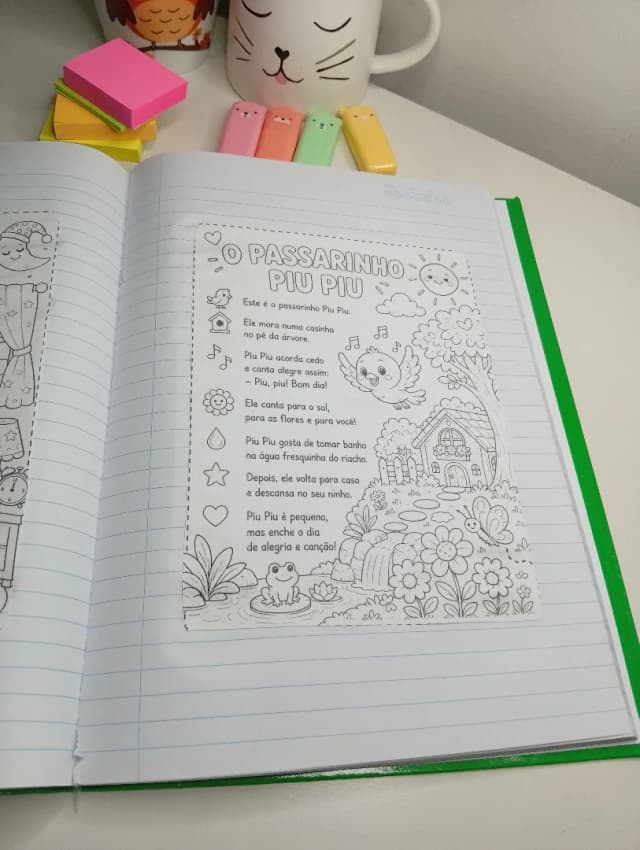 O PASSARINHO
PIU PIU
Este é o passarinho Piu Piu.
Ele mora numa casinha
no pé da árvore.
Piu Piu acorda cedo
e canta alegre assim:
– Piu, piu! Bom dia!
Ele canta para o sol,
para as flores e para você!
Piu Piu gosta de tomar banho
na água fresquinha do riacho.
Depois, ele volta para casa
e descansa no seu ninho.
Piu Piu é pequeno,
mas enche o dia
de alegria e canção!